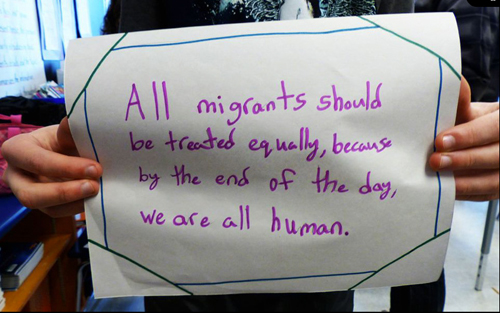 All migrants should
be treated equally, because
by the end of the day,
we are all human.